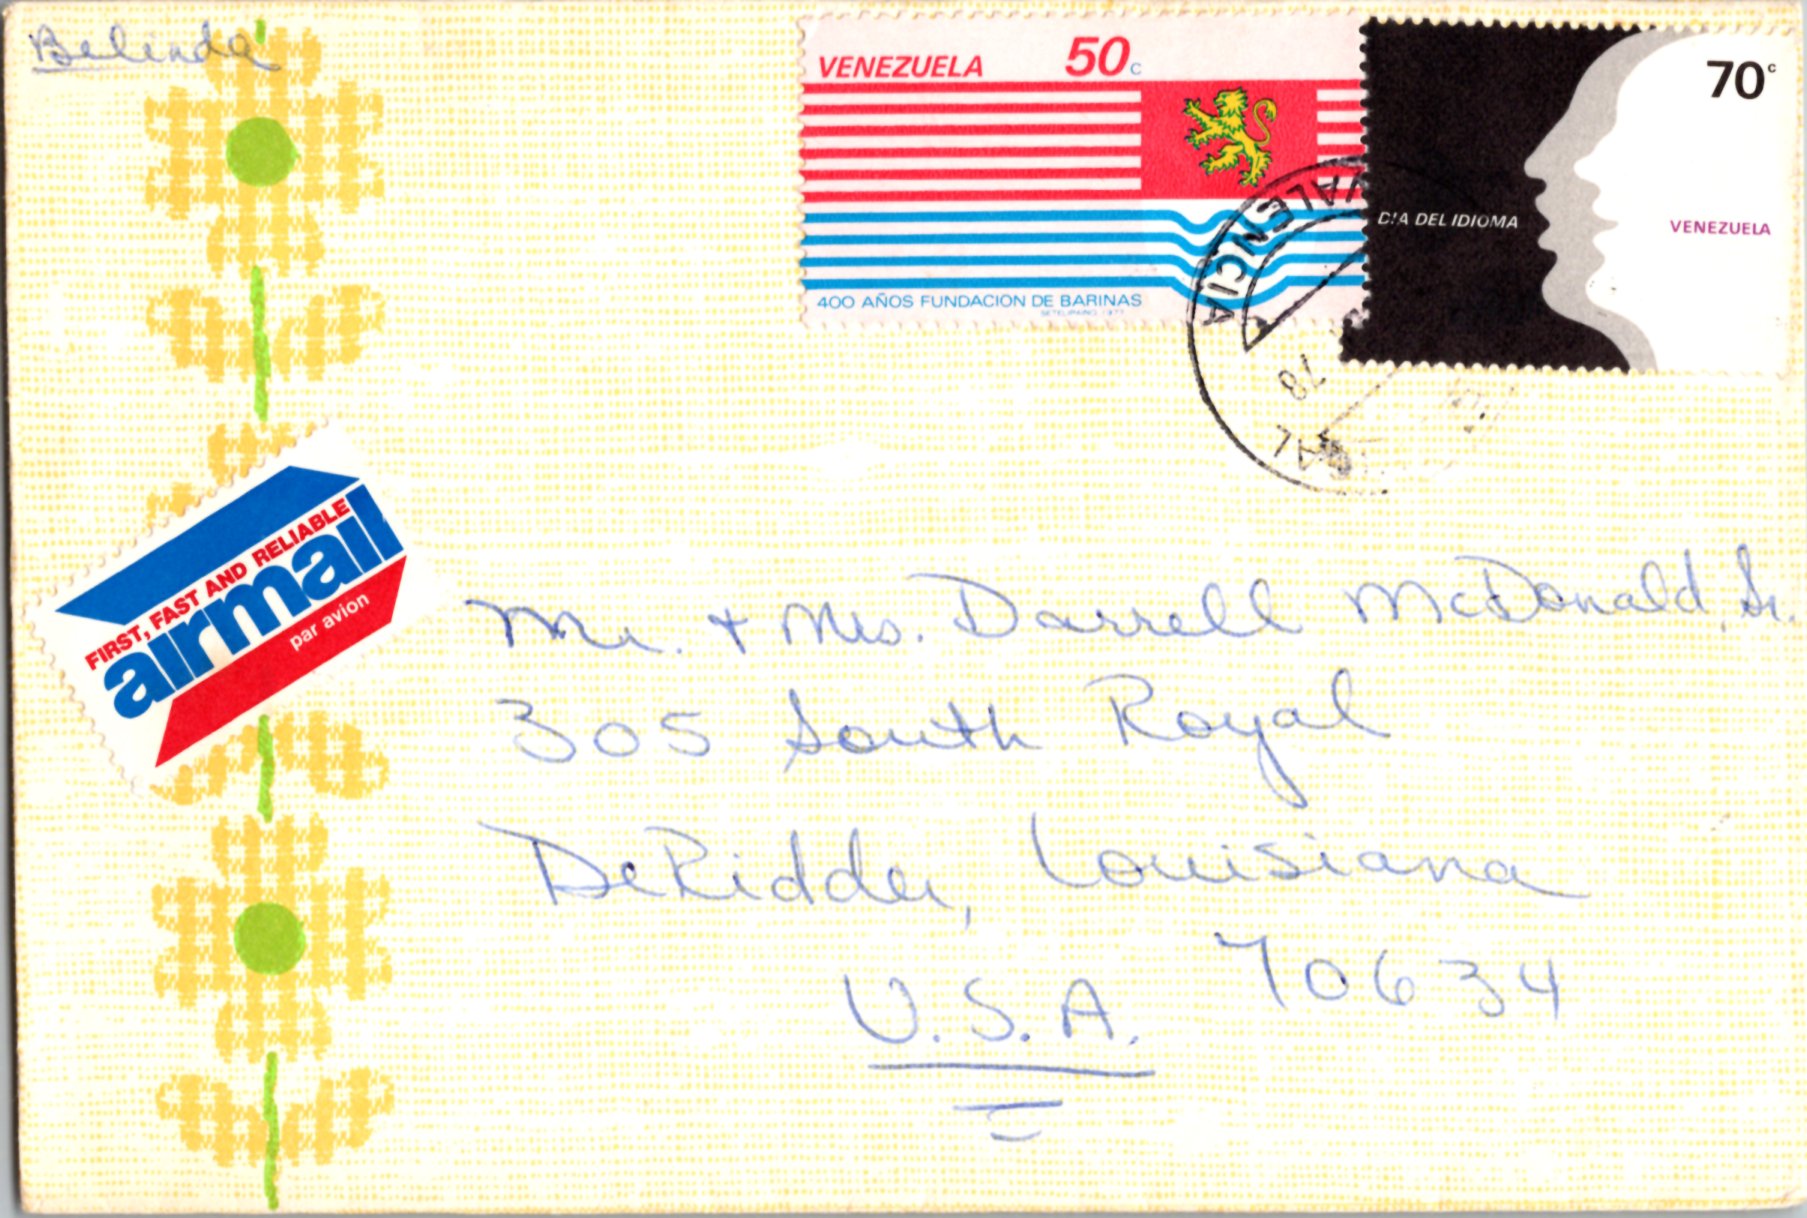 Belinda
VENEZUELA 50c
400 AÑOS FUNDACION DE BARINAS
1977
70c
DIA DEL IDIOMA
VENEZUELA
VALENCIA
78
FIRST, FAST AND RELIABLE
airmail
par avion
Mr. + Mrs. Darrell McDonald, Sr.
305 South Royal
DeRidder, Louisiana
70634
U.S.A.